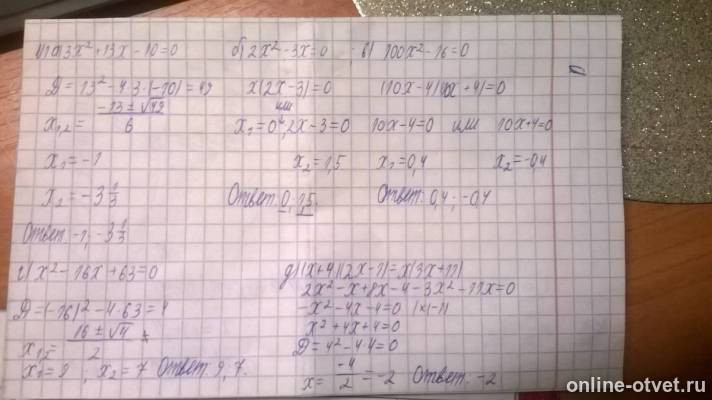 1) а) 3x² + 13x - 10 = 0
D = 13² - 4·3·(-10) = 49
x₁,₂ = (-13 ± √49) / 6
x₁ = -1
x₂ = -3 1/3
Ответ: -1; -3 1/3
б) 2x² - 3x = 0
x(2x - 3) = 0
или
x₁ = 0, 2x - 3 = 0
x₂ = 1,5
Ответ: 0; 1,5.
в) 100x² - 16 = 0
(10x - 4)(10x + 4) = 0
10x - 4 = 0 или 10x + 4 = 0
x₁ = 0,4 x₂ = -0,4
Ответ: 0,4; -0,4
г) x² - 16x + 63 = 0
D = (-16)² - 4·63 = 4
x₁,₂ = (16 ± √4) / 2
x₁ = 9, x₂ = 7 Ответ: 9; 7.
д) (x + 4)(2x - 1) = x(3x + 11)
2x² - x + 8x - 4 - 3x² - 11x = 0
-x² - 4x - 4 = 0 |×(-1)
x² + 4x + 4 = 0
D = 4² - 4·4 = 0
x = -4/2 = -2 Ответ: -2
online-otvet.ru